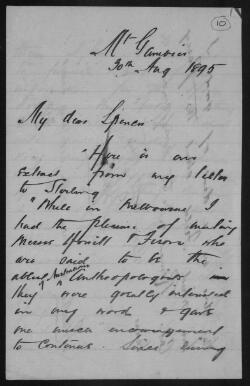 10
Mt Gambier
30th Aug 1895
My dear Spencer
"Here is an
extract from my letter
to Stirling
"While in Melbourne I
had the pleasure of meeting
Messrs Howitt & Fison who
are said to be the
ablest Australian Anthropologists
they were greatly interested
in my work & gave
me much encouragement
to continue. Since